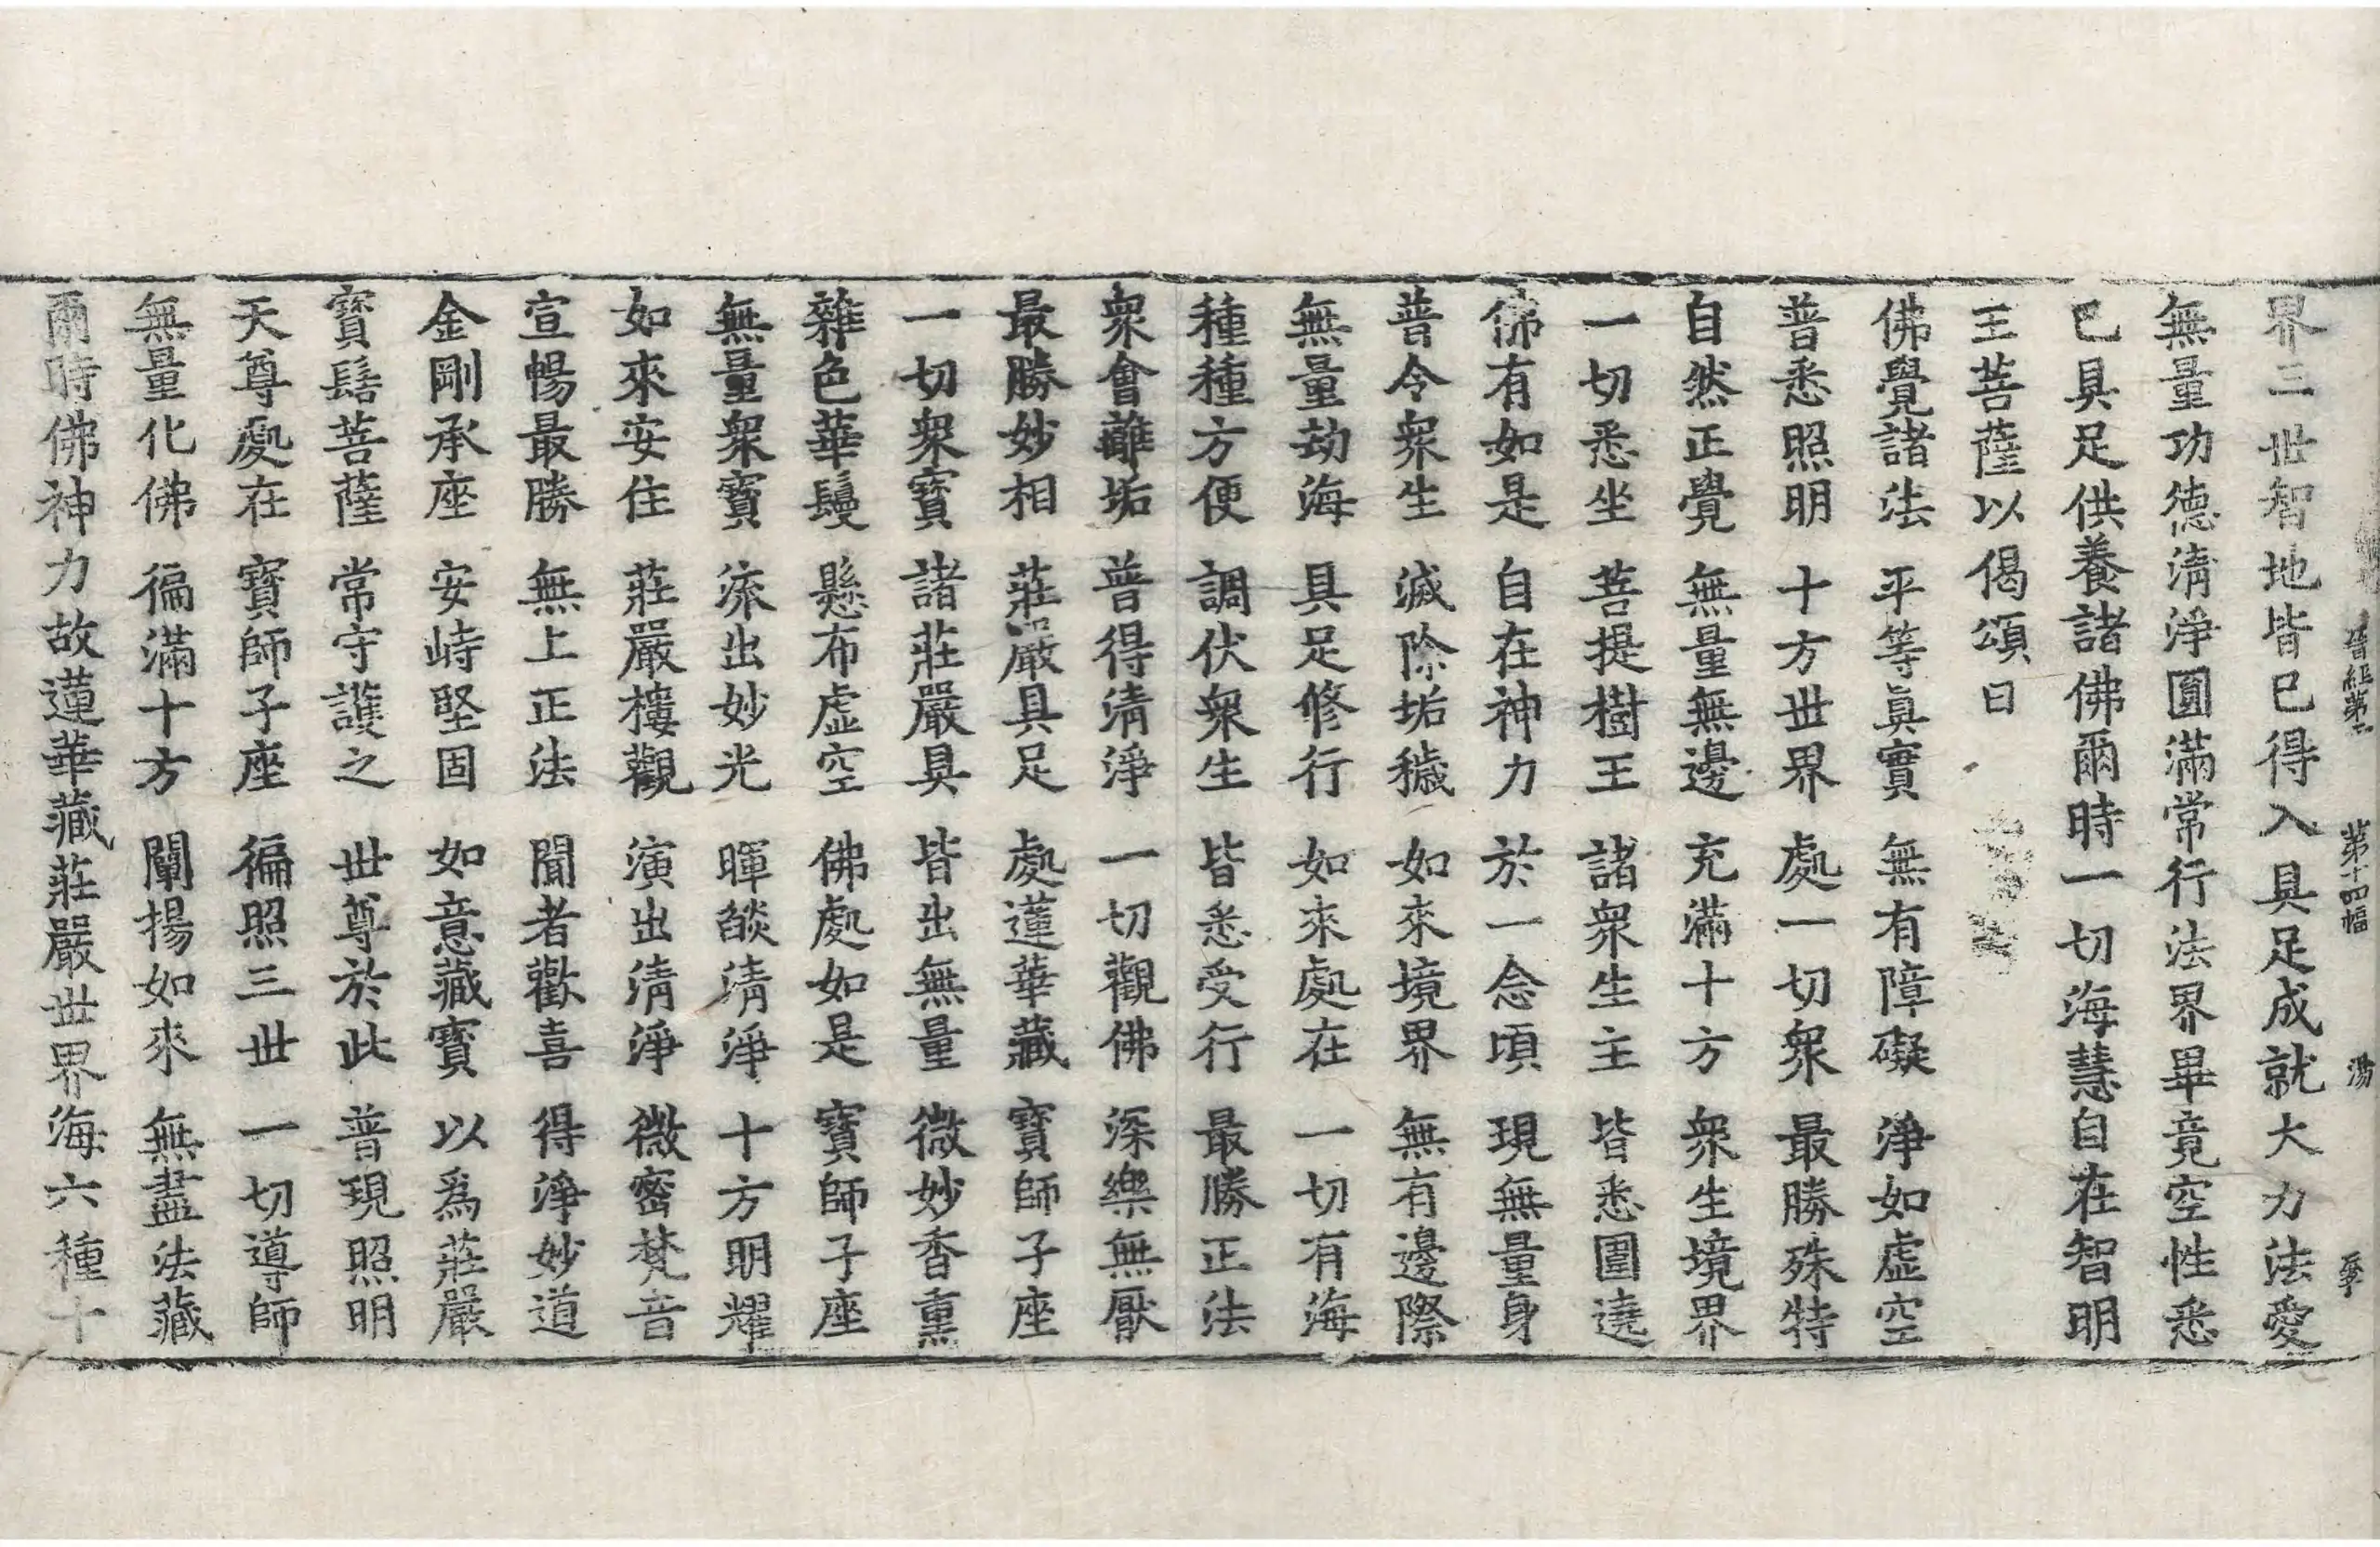 晉經第二 第十四幅 湯
界三世智地皆已得入具足成就大力法愛
無量功德淸淨圓滿常行法界畢竟空性悉
已具足供養諸佛爾時一切海慧自在智明
王菩薩以偈頌曰
佛覺諸法 平等眞實 無有障礙 淨如虛空
普悉照明 十方世界 處一切衆 最勝殊特
自然正覺 無量無邊 充滿十方 衆生境界
一切悉坐 菩提樹王 諸衆生主 皆悉圍遶
佛有如是 自在神力 於一念頃 現無量身
普令衆生 滅除垢穢 如來境界 無有邊際
無量劫海 具足修行 如來處在 一切有海
種種方便 調伏衆生 皆悉受行 最勝正法
衆會離垢 普得淸淨 一切觀佛 深樂無厭
最勝妙相 莊嚴具足 處蓮華藏 寶師子座
一切衆寶 諸莊嚴具 皆出無量 微妙香熏
雜色華鬘 懸布虛空 佛處如是 寶師子座
無量衆寶 流出妙光 暉燄淸淨 十方明耀
如來安住 莊嚴樓觀 演出淸淨 微密梵音
宣暢最勝 無上正法 聞者歡喜 得淨妙道
金剛承座 安峙堅固 如意藏寶 以爲莊嚴
寶髻菩薩 常守護之 世尊於此 普現照明
天尊處在 寶師子座 徧照三世 一切導師
無量化佛 徧滿十方 闡揚如來 無盡法藏
爾時佛神力故蓮華藏莊嚴世界海六種十